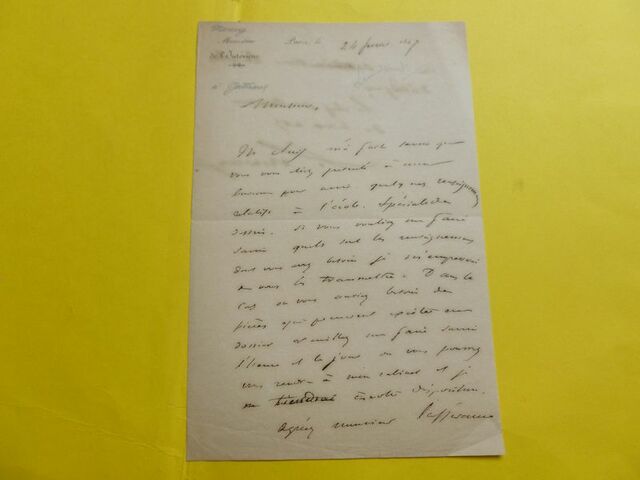 Ministère
de l'Intérieur
Paris, le 24 février 1847
Monsieur,
m'a fait savoir que
vous vous étiez présenté à mon
bureau pour avoir quelques renseignements
relatifs à l'école Spéciale de
dessin. Si vous voulez me faire
savoir quels sont les renseignements
dont vous avez besoin je m'empresserai
de vous les transmettre. Dans le
cas où vous auriez besoin de
pièces qui peuvent exister au
dossier veuillez me faire savoir
l'heure et le jour où vous pourrez
vous rendre à mon cabinet et je
me à votre disposition.
Agréez monsieur